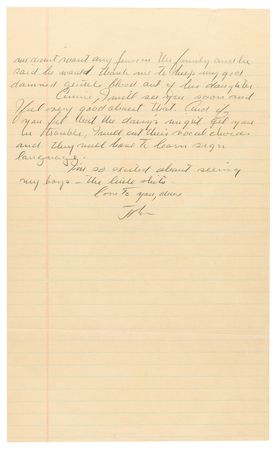 we don't want any Jews in the family and he
said he would thank me to keep my god
damned gentile blood out of his daughter.
I will see you soon and
I feel very good about that. And if
you feel that the dawgs might get you
in trouble, I will cut their vocal chords
and they will have to learn sign
language.
I'm so excited about seeing
my boys — the little shits.
Love to you, dears